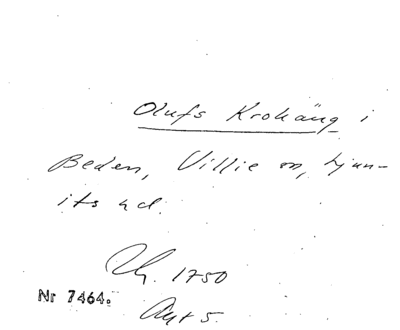 Olufs Krokäng i
Beden, Villie sn, Ljun-
its hd.
1750
Nr 7464.
Akt 5.